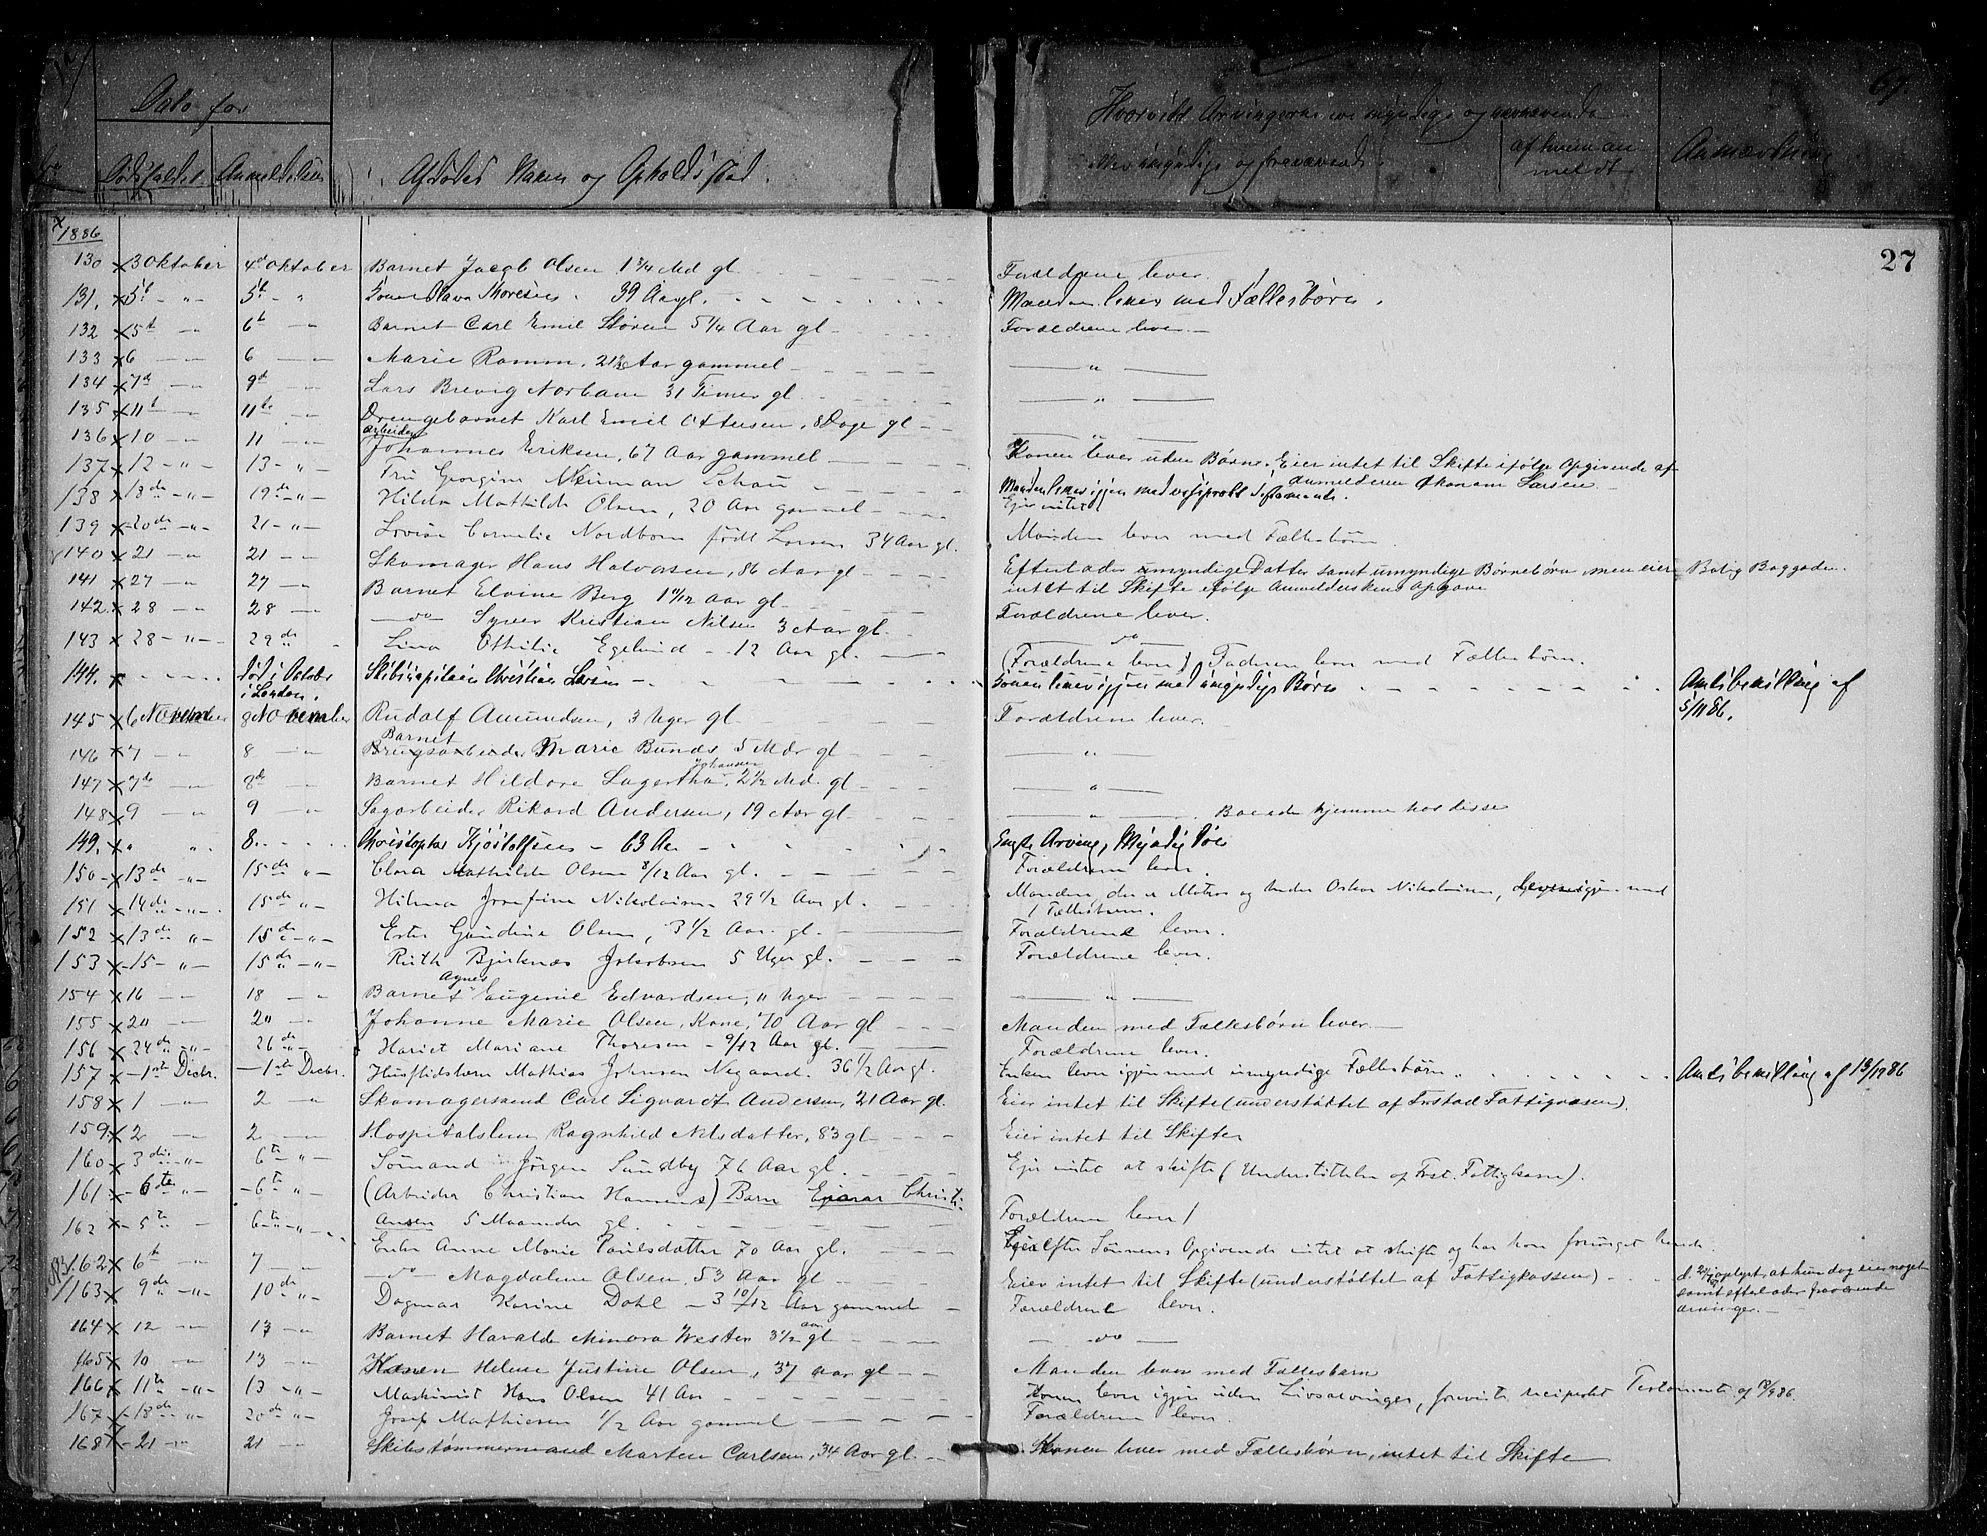 Dato for
Dødsfaldet Anmeldelsen Afdødes Navn og Opholdssted.
Hvorvidt Arvingerne ere myndige og nærværende
eller umyndige og fraværende. af hvem an
meldt Anmærkning
69.
27
1886
130 x 3 Oktober 4de Oktober Barnet Jacob Olsen 1 3/4 Md gl. Forældrene lever.
131. x 5te - " - 5te - " Konen Thoresen. 39 Aar gl. Manden lever med Fællesbørn.
132 x 5t - " 6t - " Barnet Carl Emil Støren 5 1/4 Aar gl Forældrene lever. -
133 x 6 - " 6 - " Marie Ramm, Aar gammel - " -
134 x 7d - " 9d - " Lars Brevig Norbam 31 Timer gl. - " -
135 x 11t - " 11te - " Drengebarnet Karl Emil Ottersen, 8 Dage gl - " -
136 x 10 - " 11 - " Arbeider Johannes Eriksen, 67 Aar gammel Konen lever uden Børn. Eier intet til Skifte ifølge Opgivende af
Anmelderen Økonom Larsen.
137 x 12 - " - 13 - " Fru Georgine Neuman Schou Manden lever igjen med reciprokt Testamente.
138 x 18de - " - 19de - " - Hilda Mathilde Olsen, 20 Aar gammel Ejer intet
139 x 20de - " - 21 - " - Lovise Cornelie Nordbom født Larsen 34 Aar gl. Manden lever med Fællesbørn
140 x 21 - " 21 - " Skomager Hans Halvorsen, 86 Aar gl Efterlader myndige Datter samt umyndige Børnebørn men eier Bolig Baggaden.
intet til Skifte ifølge Anmelderskens Opgave
141 x 27 - " 27 - " Barnet Elvine Berg 1 11/12 Aar gl. Forældrene lever.
142. x 28 - " 28 - " - do - Syver Kristian Nilsen 3 Aar gl. - do -
143 x 28 - " - 29de " Lina Othilie Egelund - 12 Aar gl. (Forældrene lever) Faderen lever med Fællesbørn.
144. x Død i October i London. Skibscapitain Christian Larsen Konen lever igjen med umyndige Børn Amtsbevilling af
5/11 86.
145 x 6 November 8 November Rudolf Amundsen, 3 Uger gl Forældrene lever.
146 x 7 - " 8 - " Barnet Marie Bunæs, 5 Mdr gl - " -
147 x 7de - " 8de - " Barnet Hildore Lagertha Johansen, 2 1/2 Md. gl - " -
148 x 9 - " 9 - " Sagarbeider Rikard Andersen, 19 Aar gl - " - . Boende hjemme hos disse
149. x " " 8. Christopher Kjøstolfsen - 63 Aar Eneste Arving, Myndig
150 - x 13de " - 15de " - Clara Mathilde Olsen 8/12 Aar gl. Forældrene lever.
151 x 14de - " - 15de " - Hilma Josefine Nikolaisen 29 1/2 Aar gl. Manden, der er Oskar Nikolaisen, Lever igjen med
1 Fællesbarn.
152 x 13de " - 15de - " - Ester Gundine Olsen, 3 1/2 Aar gl. Forældrene lever.
153 x 15 - " - 15de - " - Ruth Bjerknæs Jakobsen 5 Uger gl. Forældrene lever.
154 x 16 - " 18 - " Barnet Agnes Eugenie Edvardsen, 11 Uger - " -
155 x 20 - " 20 - " Johanne Marie Olsen, Kone, 70 Aar gl Manden med Fællesbørn lever. -
156 x 24de " - 26de " - Hariet Mariane Thoresen - 9/12 Aar gl. Forældrene lever.
157 x - 1ste Decbr. - 1ste Decbr. Husflidslærer Mathias Johnsen Nygaard. 36 1/2 Aar gl. Enken lever igjen med umyndige Fællesbørn Amtsbevilling af 13/12 86
158 x 1 - " 2 - " Skomagersvend Carl Sigvardt Andersen, 21 Aar gl. Eier intet til Skifte (understøttet af Frstad Fattigvæsen).
159. x 2 - " 2 - " Hospitalslem Ragnhild Nilsdatter, 83 gl - Eier intet til Skifte
160 x 3die - " - 6te " - Sømand Jørgen Sundby 76 Aar gl. Ejer intet at skifte (Understøttelse af Frst. Fattigkasse).
161 - x 6te " - - 6te " - (Arbeider Christian Hansens) Barn Ejnar Christi
ansen 5 Maaneder gl. Forældrene lever
162 x 5te - 6te - " - Enke Anne Marie Paulsdatter 70 Aar gl. Ejer efter Sønnens Opgivende intet at skifte og har han forsørget hende.
162 x 6te " 7 - " - do - Magdalene Olsen, 53 Aar gl Eier intet til Skifte (understøttet af Fattigkassen) oplyst, at hun dog eier noget
samt efterlader fraværende
arvinger. -
163 x 9de - " - 10de " - Dagmar Karine Dahl - 3 10/12 Aar gammel Forældrene lever.
164 x 12 - " 13 - " Barnet Haralda Minora Wester 3 1/2 aar gl - do -
165 x 10 - " 13 - " Konen Helene Justine Olsen, 37 aar gl Manden lever med Fællesbarn
166 x 11te - " - 13 - " - Maskinist Hans Olsen 41 Aar Konen lever igjen uden Livsarvinger, forevist reciprokt Testamente af /9 86.
167 x 18de " - 20de " - Josef Mathiesen 1/2 Aar gammel Forældrene lever.
168 x - 21 - " 21 - " Skibstømmermand Marten Carlsen, 34 Aar gl. Konen lever med Fællesbørn, intet til Skifte